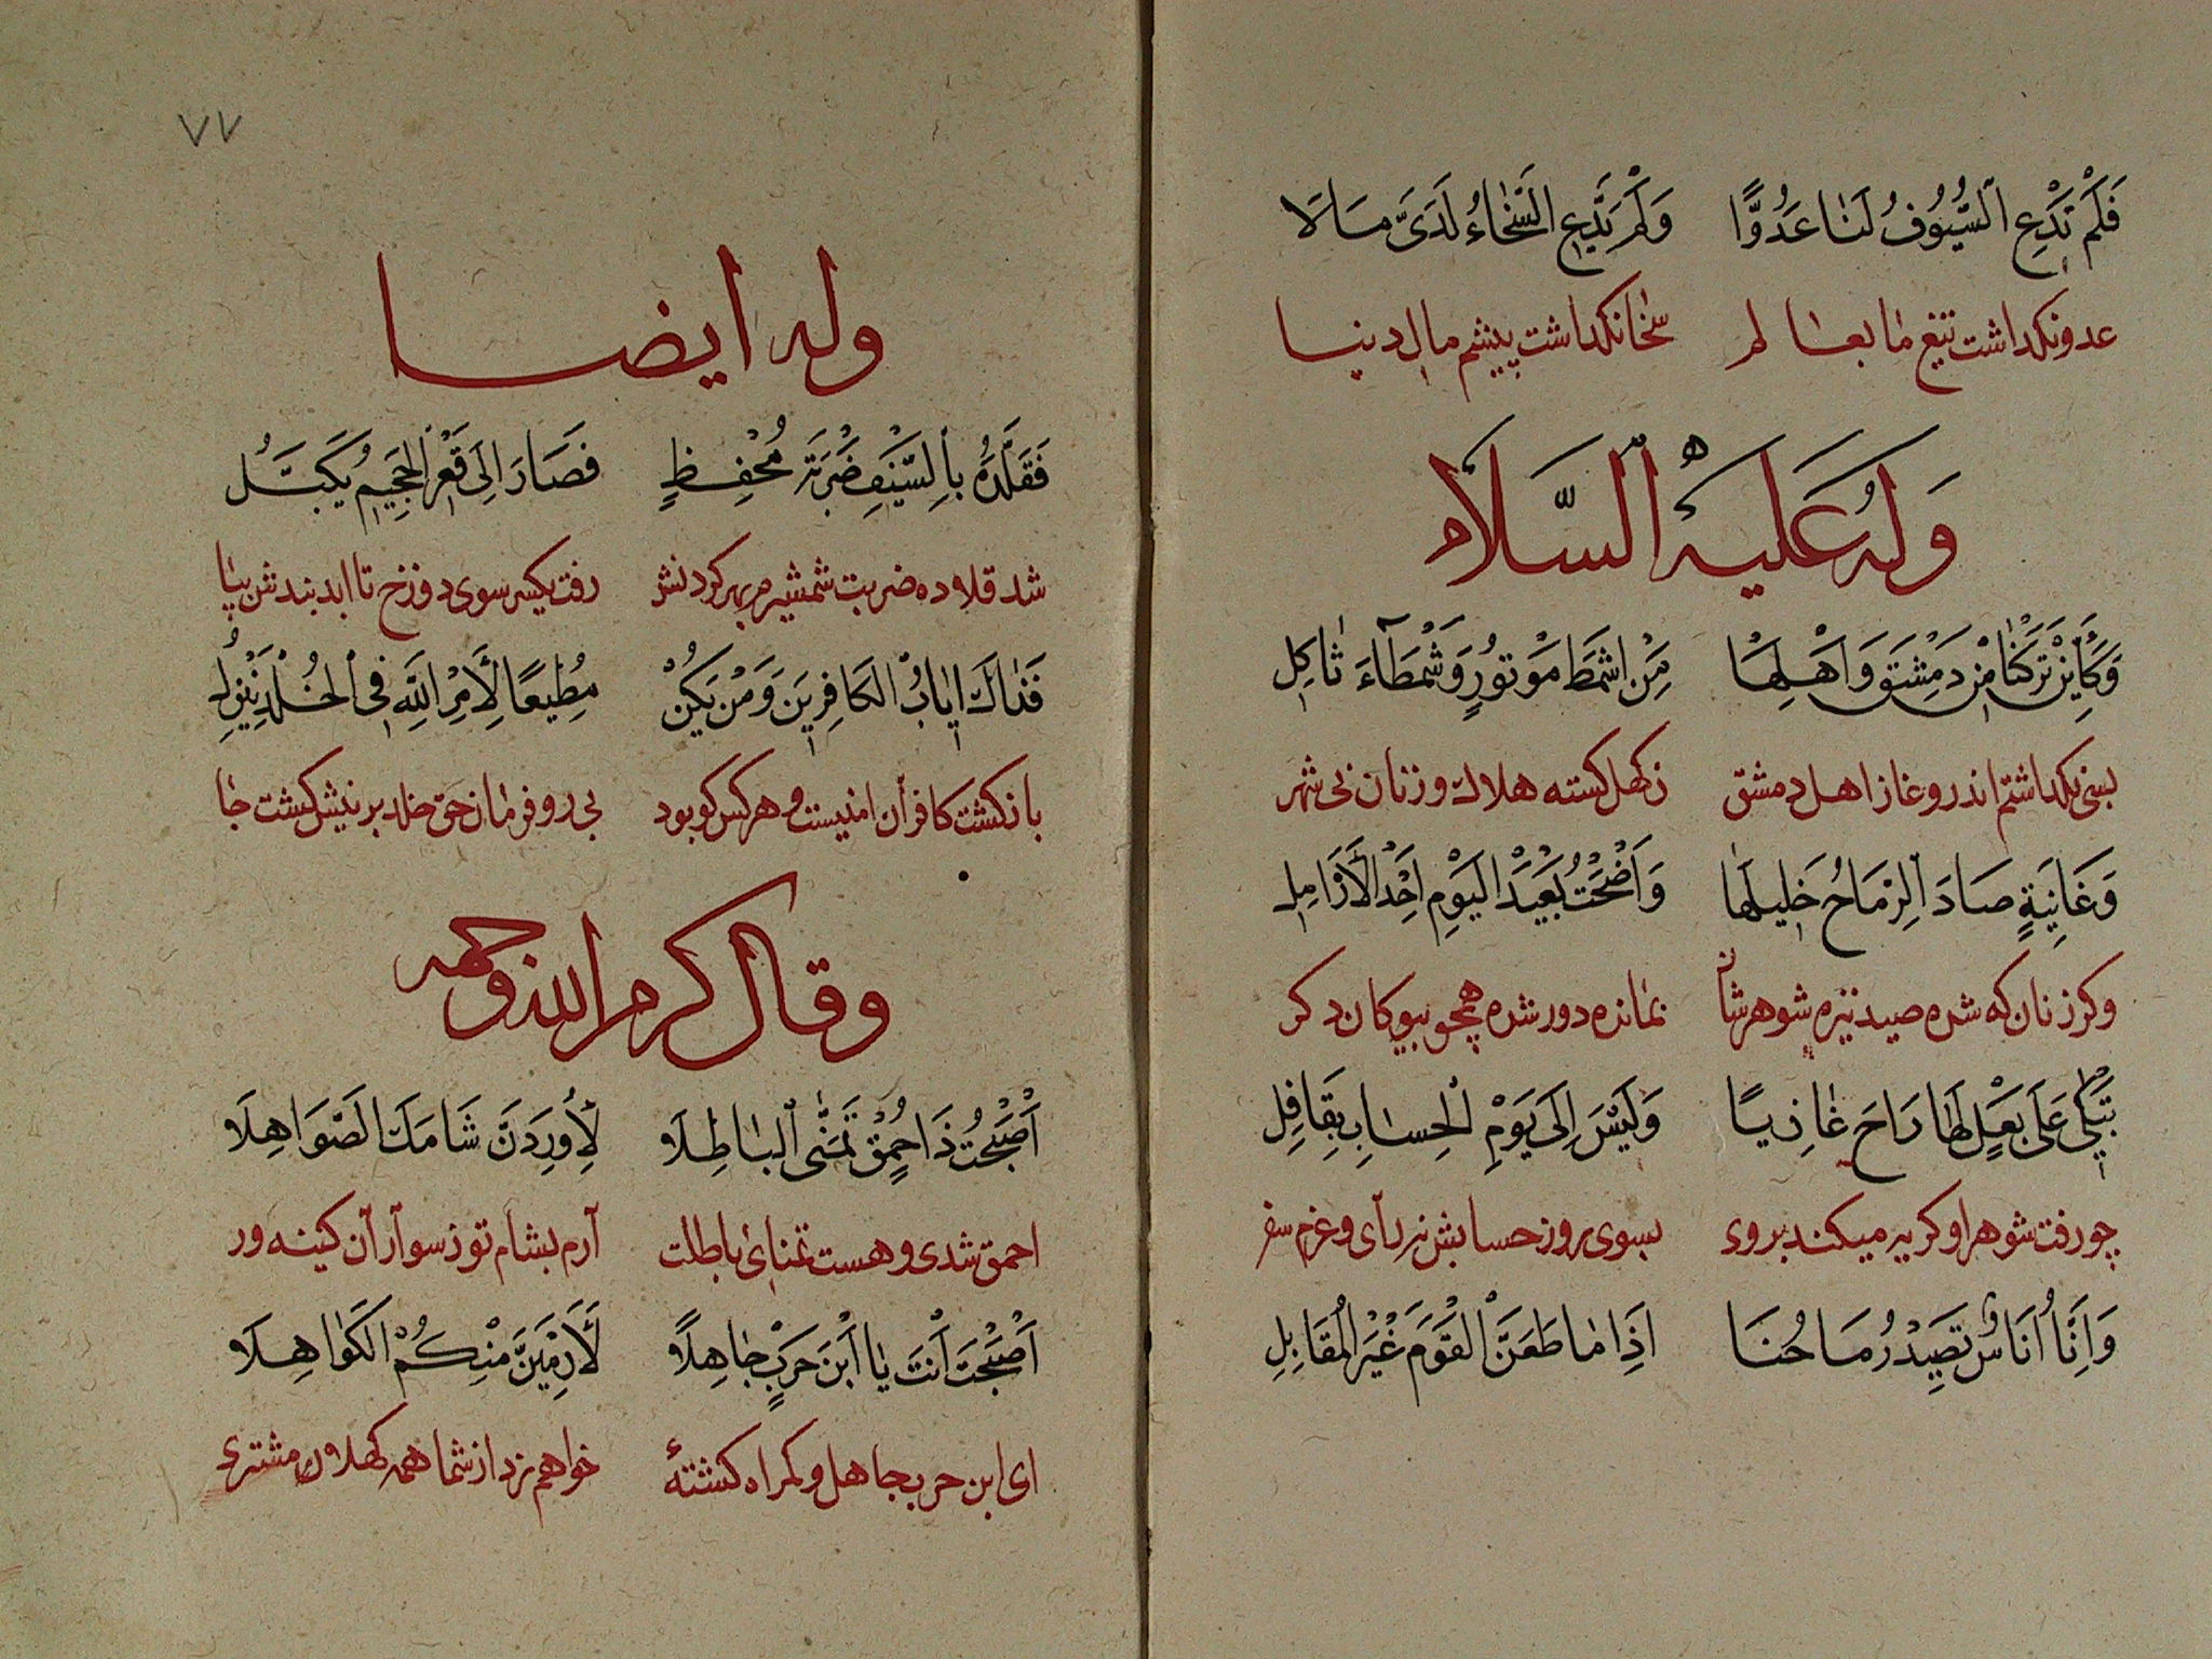 فَلَمْ تَدَعِ السُّيُوفُ لَنَا عَدُوًّا وَلَمْ يَدَعِ السَّخَاءُ لَدَىَّ مَالَا
عدو نکذاشت تیغ ما بعالم سخا نکذاشت پیشم مال دنیا
وَلَهُ عَلَيْهِ السَّلَامُ
وَكَأَيِنْ تَرَكْنَا مِنْ دَمِشْقَ وَاَهْلِهَا مِنْ اَشْمَطَ مَوْتُورٍ وَشَمْطَآءَ ثَاكِلِ
بسی نکذاشتم اندر وغا ز اهل دمشق ز کهل کشته هلاک و زنان بی شهر
وَغَانِيَةٍ صَادَ الرِّمَاحُ خَلِيلَهَا وَاَضْحَتْ بُعَيْدَ الْيَوْمِ اِحْدَ الْأَرَامِلِ
وکر زنان که شده صید نیزه شوهرشان بمانده دور شده همچو بیوکان دکر
تَبْكِى عَلَى بَعْلٍ لَهَا رَاحَ غَازِيًا وَلَيْسَ اِلَى يَوْمِ الْحِسَابِ بِقَافِلِ
چو رفت شوهر او کریه میکند بر وی بسوی روز حسابش نه رأی و عزم سفر
وَاِنَّا اُنَاسٌ تَصِيْدُ رِمَاحُنَا اِذَا مَا طَعَنَّ الْقَوْمَ غَيْرَ الْمُقَابِلِ
٧٧
وله ایضا
فَقَلَّدَهُ بِالسَّيْفِ ضَرْبَةَ مُحْفِظٍ فَصَارَ اِلَى قَعْرِ الْجَحِيْمِ يُكَبَّلُ
شد قلاده ضربت شمشیرم بهر کردنش رفت یکسر سوی دوزخ تا ابد بندش بپا
فَذَاكَ اِيَابُ الْكَافِرِينَ وَمَنْ يَكُنْ مُطِيعًا لِأَمْرِ اللَّهِ فِى الْخُلْدِ يَنْزِلُ
بازکشت کافران اینست و هرکس کو بود پی رو فرمان حق خلد برینش کشت جا
وقال کرم الله وجهه
اَصْبَحْتُ ذَا حُمْقٍ تَمَنَّى الْبَاطِلَا لَأُورِدَنَّ شَامَكَ الصَّوَاهِلَا
احمق شدی و هست تمنای باطلت آرم بشام تو ز سواران کینه ور
اَصْبَحْتَ اَنْتَ يَا اَبْنَ حَرْبٍ جَاهِلًا لَأَرْمِيَنَّ مِنْكُمْ الْكَوَاهِلَا
ای ابن حرب جاهل و کمراه کشتهٔ خواهم زد از شما همه کهلان مشتری